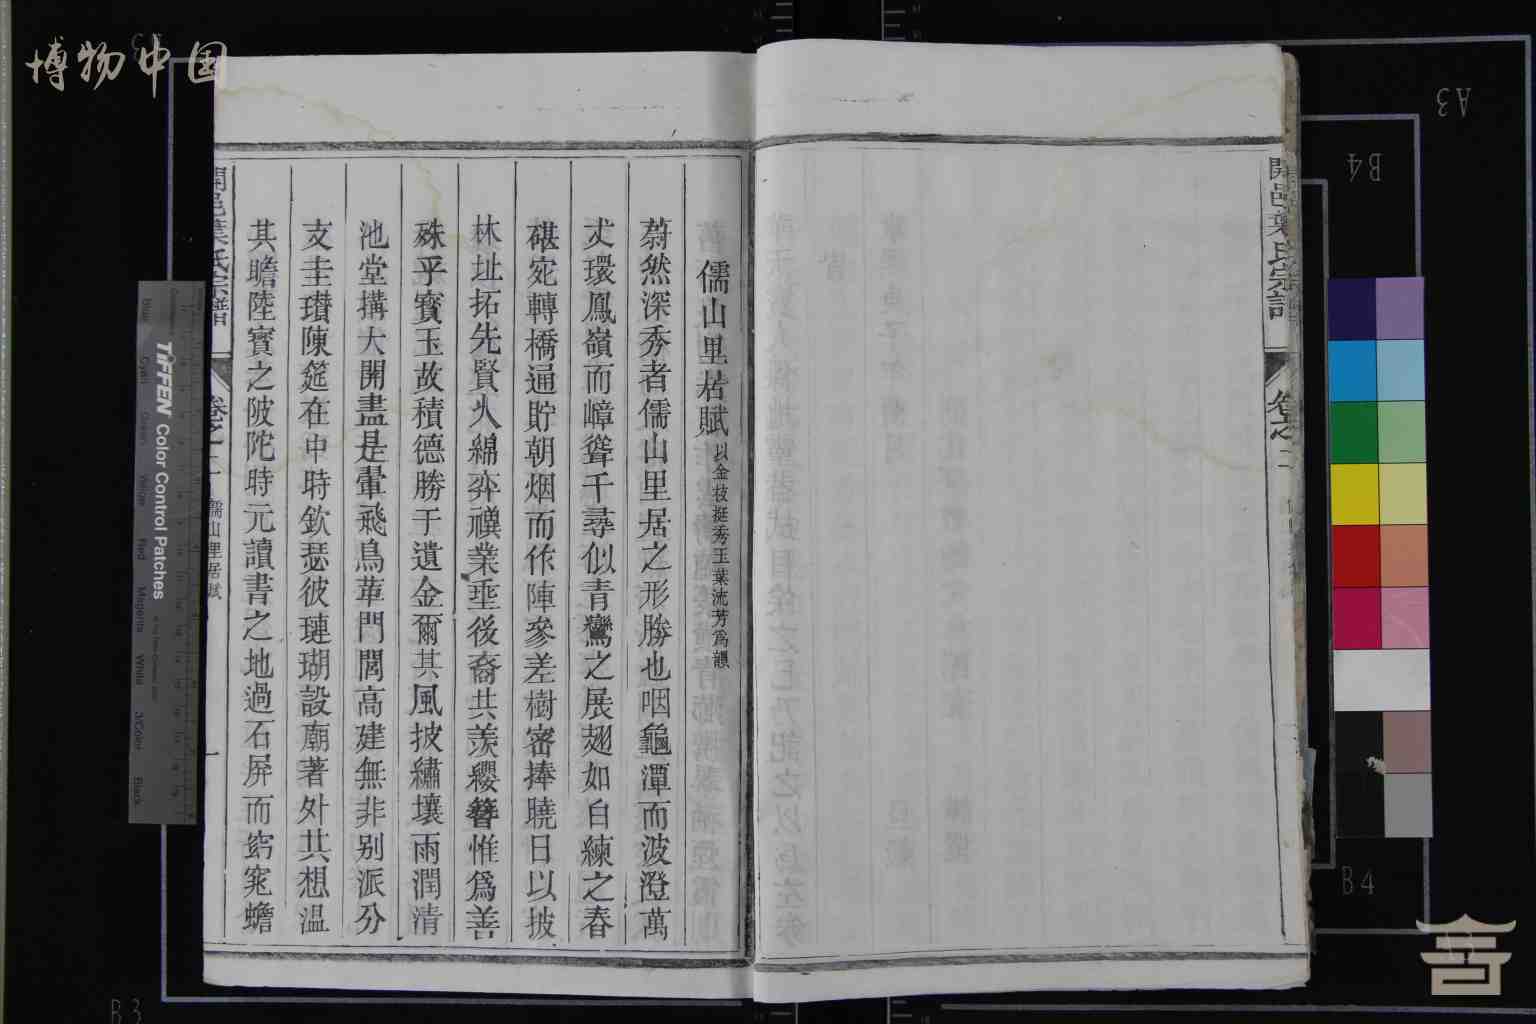 博物中国
A3
B4
開邑葉氏宗譜
卷之二
儒山里居賦 以金枝挺秀玉葉流芳為韻
蔚然深秀者儒山里居之形勝也咽龜潭而波澄萬
丈環鳳嶺而嶂聳千尋似青鸞之展翅如白練之春
碪宛轉橋通貯朝烟而作陣參差樹密捧曉日以披
林址拓先賢人綿奕禩業垂後裔共羨纓簪惟爲善
殊乎寳玉故積德勝于遺金爾其風披繡壤雨潤清
池堂搆大開盡是翬飛鳥革門閭高建無非别派分
支圭瓚陳筵在中時欽瑟彼璉瑚設廟著外共想温
其瞻陸寳之陂陀時元讀書之地過石屏而窈窕蟾
開邑葉氏宗譜
卷之二
儒山里居賦
一
TIFFEN Color Control Patches
Blue
Cyan
Green
Yellow
Red
Magenta
White
3/Color
Black
B4
B3